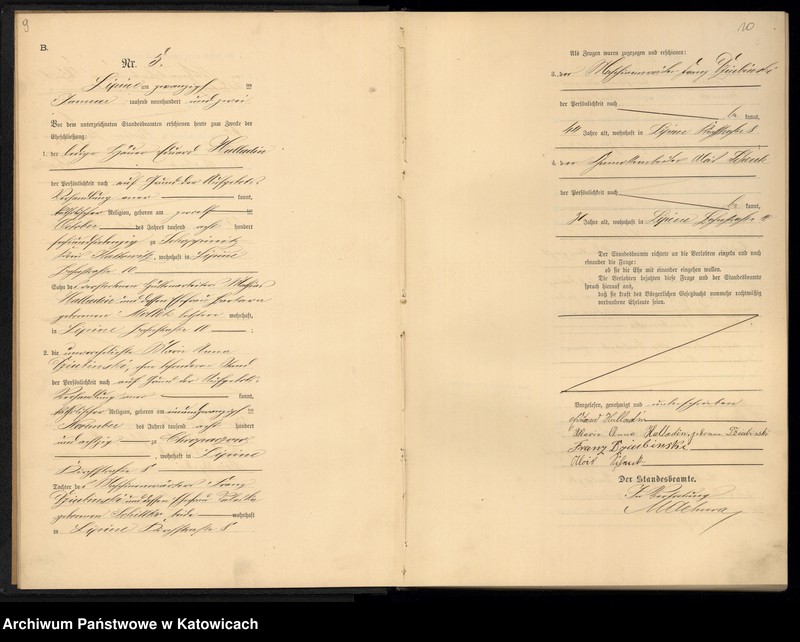 9
B.
Nr. 5.
Lipine am zwanzigsten
Januar tausend neunhundert und zwei
Vor dem unterzeichneten Standesbeamten erschienen heute zum Zwecke der
Eheschließung:
1. der ledige Häuer Eduard Halladin
der Persönlichkeit nach auf Grund der Aufgebots-
Verhandlung aner kannt,
katholischer Religion, geboren am zwölften
October des Jahres tausend acht hundert
sechsundsiebenzig zu Schoppinitz
Kreis Kattowitz, wohnhaft in Lipine
Sohn des verstorbenen Hüttenarbeiters
Halladin und dessen Ehefrau Barbara
geborenen letztere wohnhaft,
in Lipine 10 ;
2. die unverehelichte Marie Anna
Dziubinski, ohne besonderen Stand
der Persönlichkeit nach auf Grund der Aufgebots-
Verhandlung aner kannt,
katholischer Religion, geboren am einundzwanzigsten
November des Jahres tausend acht hundert
und achtzig zu Chropaczow
, wohnhaft in Lipine
8
Tochter des Maschinenwärters Franz
Dziubinski und dessen Ehefrau
geborenen beide wohnhaft
in Lipine 8
10
Als Zeugen waren zugezogen und erschienen:
3. der Maschinenwärter Franz Dziubinski
der Persönlichkeit nach
be kannt,
Jahre alt, wohnhaft in Lipine 8
4. der Alois
der Persönlichkeit nach
be kannt,
Jahre alt, wohnhaft in Lipine
Der Standesbeamte richtete an die Verlobten einzeln und nach
einander die Frage:
ob sie die Ehe mit einander eingehen wollen.
Die Verlobten bejahten diese Frage und der Standesbeamte
sprach hierauf aus,
daß sie kraft des Bürgerlichen Gesetzbuchs nunmehr rechtmäßig
verbundene Eheleute seien.
Vorgelesen, genehmigt und unterschrieben
Eduard Halladin
Marie Anna Halladin, geborene Dziubinski
Franz Dziubinski
Alois
Der Standesbeamte.
In Vertretung
Archiwum Państwowe w Katowicach